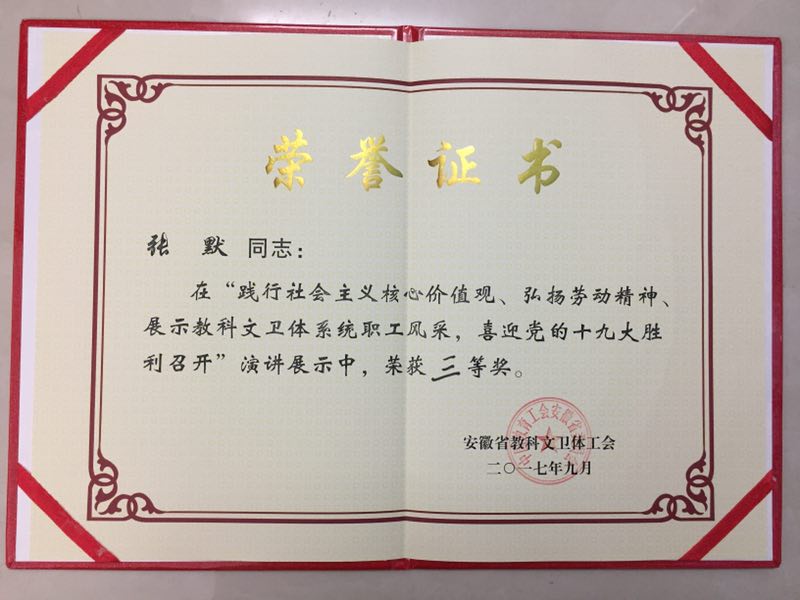 荣誉证书
张 默 同志：
在“践行社会主义核心价值观、弘扬劳动精神、
展示教科文卫体系统职工风采，喜迎党的十九大胜
利召开”演讲展示中，荣获 三等奖。
安徽省教科文卫体工会
二〇一七年九月